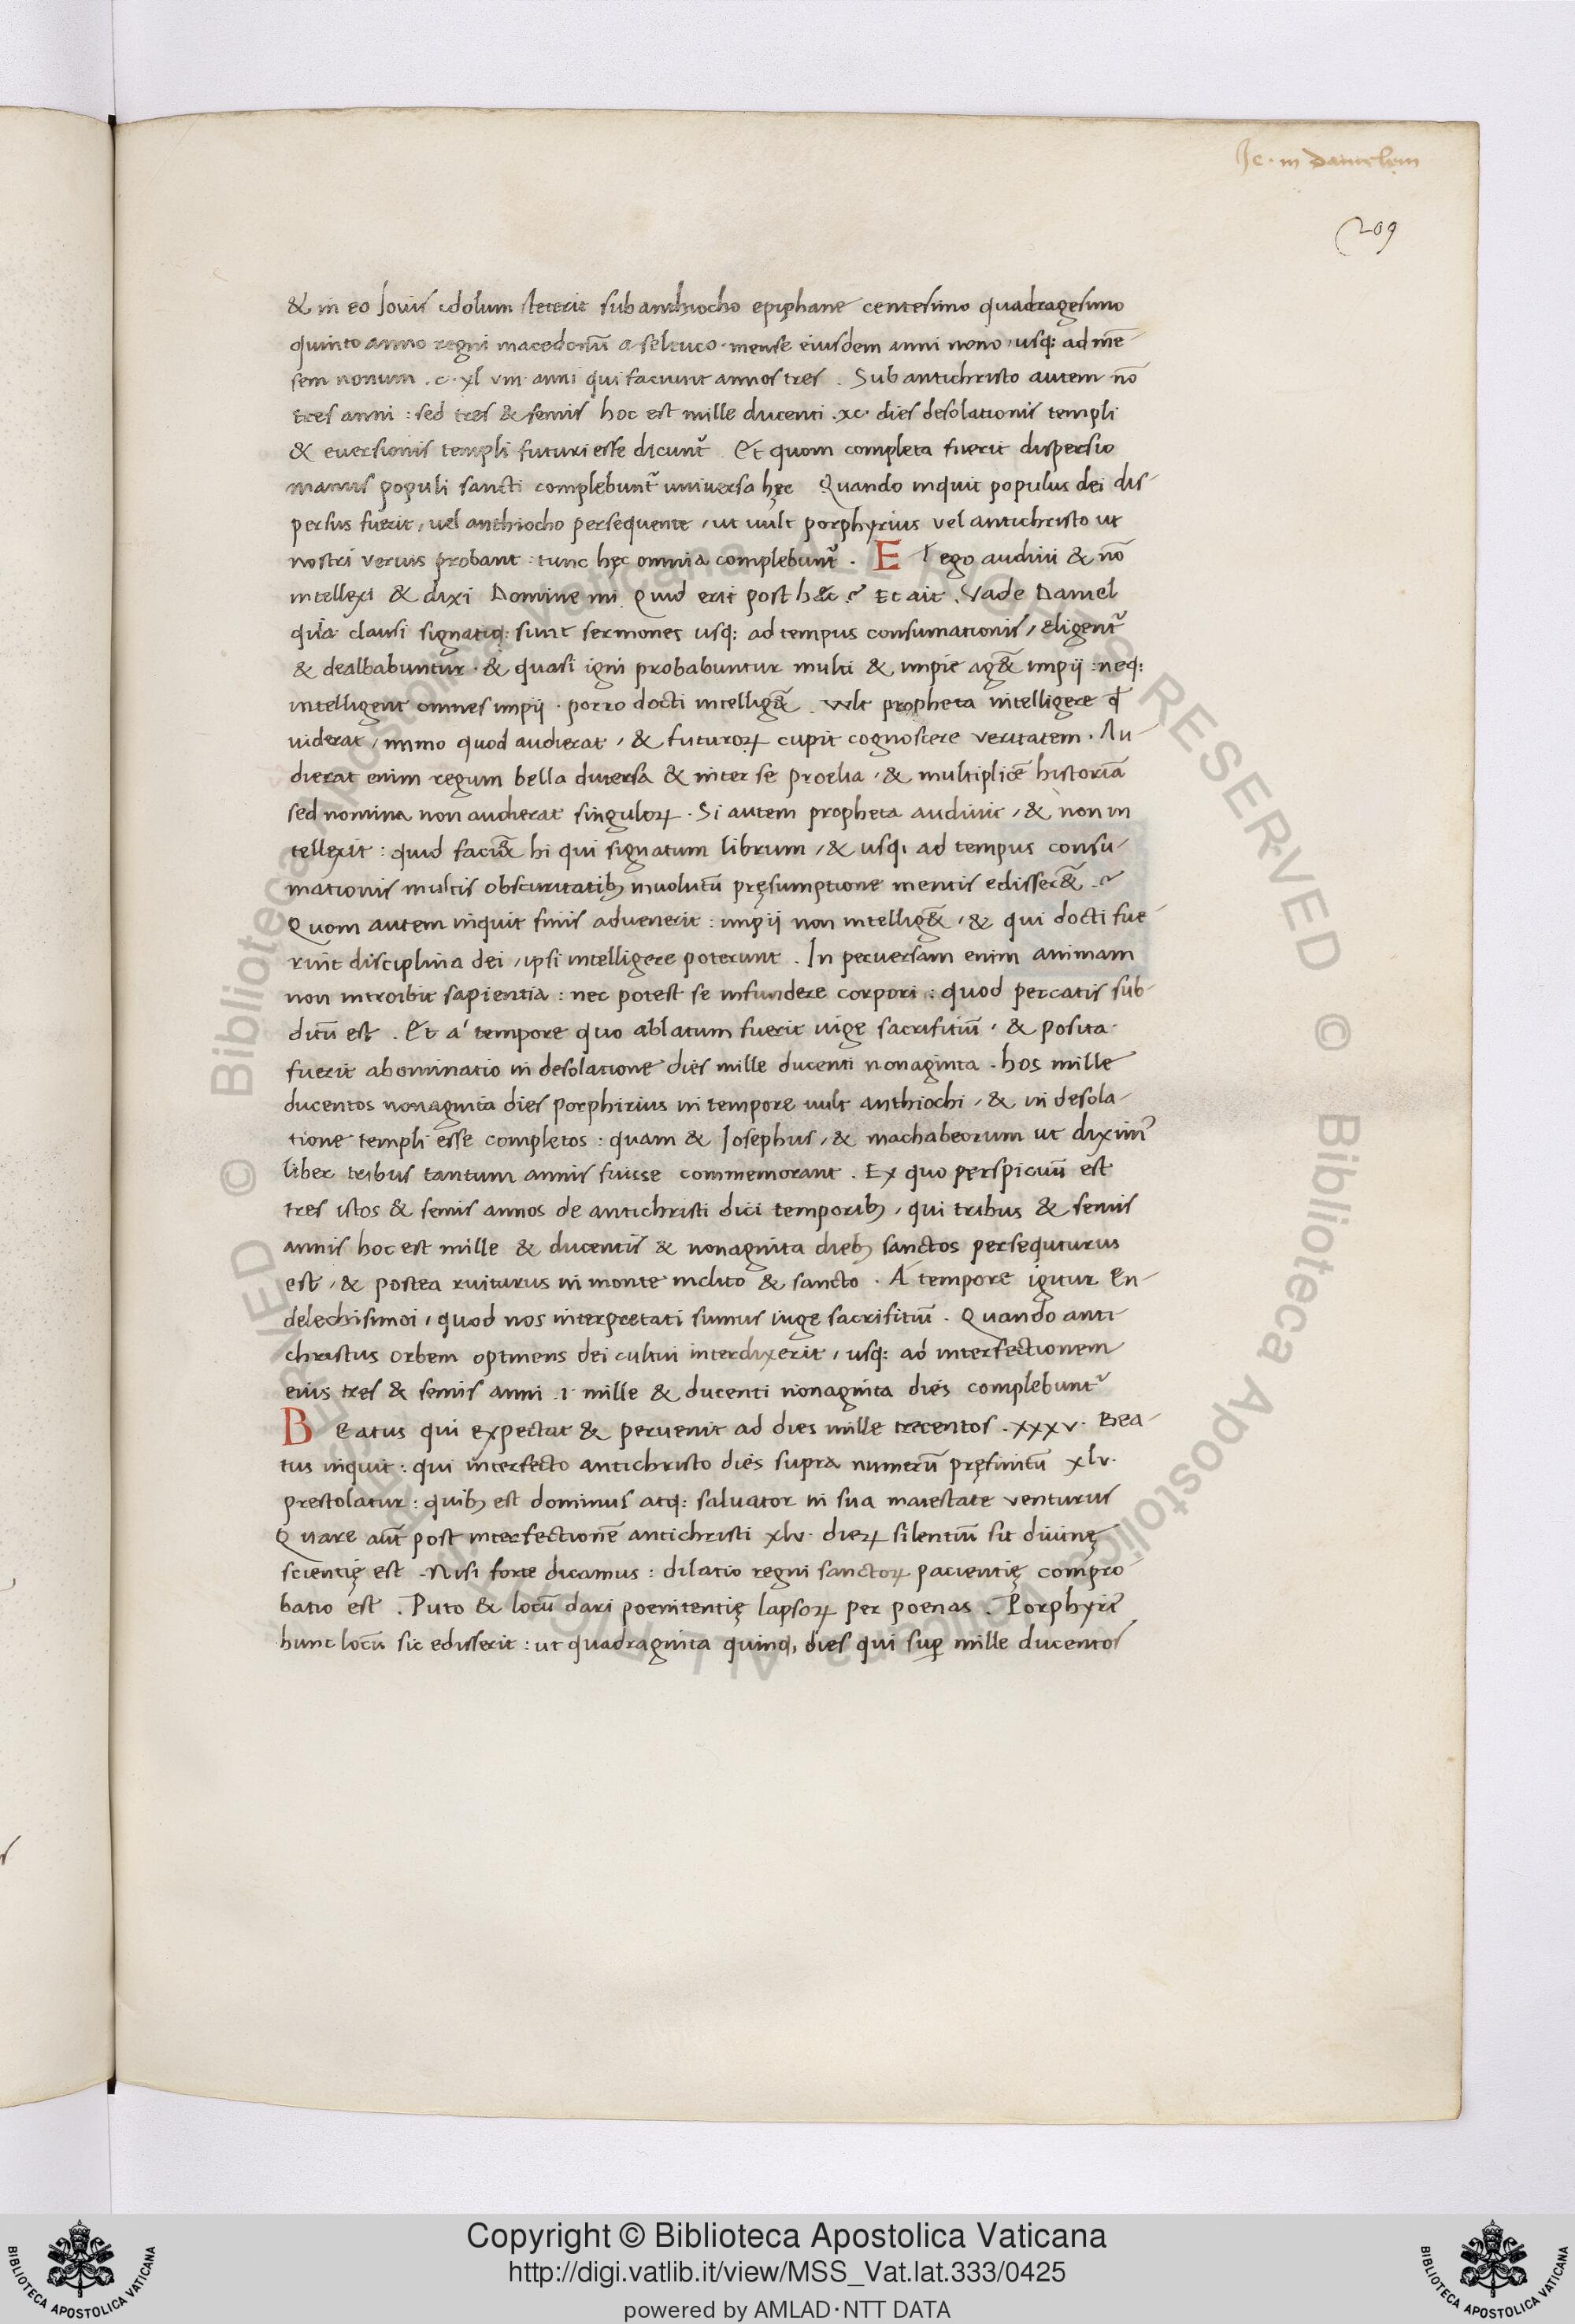 Ie. in danielem
209
& in eo Iouis idolum steterit sub anthiocho epiphane centesimo quadragesimo
quinto anno regni macedonū a seleuco. mense eiusdem anni nono, usq; ad mē-
sem nonum . c. xl viii anni qui faciunt annos tres . Sub antichristo autem nō
tres anni : sed tres & semis hoc est mille ducenti .xc. dies desolationis templi
& euersionis templi futuri esse dicunt᷑ . Et quom completa fuerit dispersio
manus populi sancti complebunt᷑ uniuersa hęc Quando inquit populus dei dis-
persus fuerit, uel anthiocho persequente, ut uult porphyrius vel antichristo ut
nostri verius probant : tunc hęc omnia complebunt᷑ . ET ego audiui & nō
intellexi & dixi Domine mi Quid erit post h&c ? Et ait . Vade Daniel
quia clausi signatiq; sunt sermones usq; ad tempus consumationis, eligent᷑
& dealbabuntur . & quasi igni probabuntur multi & impie ag&̄ impij : neq;
intelligent omnes impij . porro docti intellig&̄ . vult propheta intelligere qđ
uiderat, immo quod audierat, & futuroꝝ cupit cognoscere veritatem . Au-
dierat enim regum bella diuersa & inter se proelia, & multiplicē historiā
sed nomina non audierat singuloꝝ . Si autem propheta audiuit, & non in
tellexit : quid faci&̄ hi qui signatum librum, & usq; ad tempus consu-
mationis multis obscuritatibꝫ inuolutū pręsumptione mentis edisser&̄ ?
Quom autem inquit finis aduenerit : impij non intellig&̄, & qui docti fue-
rint disciplina dei, ipsi intelligere poterunt . In peruersam enim animam
non introibit sapientia : nec potest se infundere corpori : quod peccatis sub-
ditū est . Et a' tempore quo ablatum fuerit iuge sacrifitiū, & posita
fuerit abominatio in desolatione dies mille ducenti nonaginta . hos mille
ducentos nonaginta dies porphirius in tempore uult anthiochi, & in desola-
tione templi esse completos : quam & Iosephus, & machabeorum ut diximꝰ
liber tribus tantum annis fuisse commemorant . Ex quo perspicuū est
tres istos & semis annos de antichristi dici temporibꝫ, qui tribus & semis
annis hoc est mille & ducentis & nonaginta diebꝫ sanctos persequturus
est, & postea ruiturus in monte inclito & sancto . A' tempore igitur En-
delechismoi, quod nos interpretati sumus iuge sacrifitiū . Quando anti
christus orbem optinens dei cultui interdixerit, usq; ad interfectionem
eius tres & semis anni .i. mille & ducenti nonaginta dies complebunt᷑
BEatus qui expectat & peruenit ad dies mille trecentos .xxxv. Bea-
tus inquit : qui interfecto antichristo dies supra numerū pręfinitū xlv.
prestolatur : quibꝫ est dominus atq; saluator in sua maiestate venturus
Quare aūt post interfectionē antichristi xlv. dieꝝ silentiū sit diuinę
scientię est . Nisi forte dicamus : dilatio regni sanctoꝝ pacientię compro-
batio est . Puto & locū dari poenitentię lapsoꝝ per poenas . Porphyriꝰ
hunc locū sic edisserit : ut quadraginta quinqꝫ dies qui suꝑ mille ducentos
© Biblioteca Apostolica Vaticana ALL RIGHTS RESERVED © Biblioteca Apostolica Vaticana ALL RIGHTS RESERVED
BIBLIOTECA APOSTOLICA VATICANA
Copyright © Biblioteca Apostolica Vaticana
http://digi.vatlib.it/view/MSS_Vat.lat.333/0425
powered by AMLAD·NTT DATA
BIBLIOTECA APOSTOLICA VATICANA